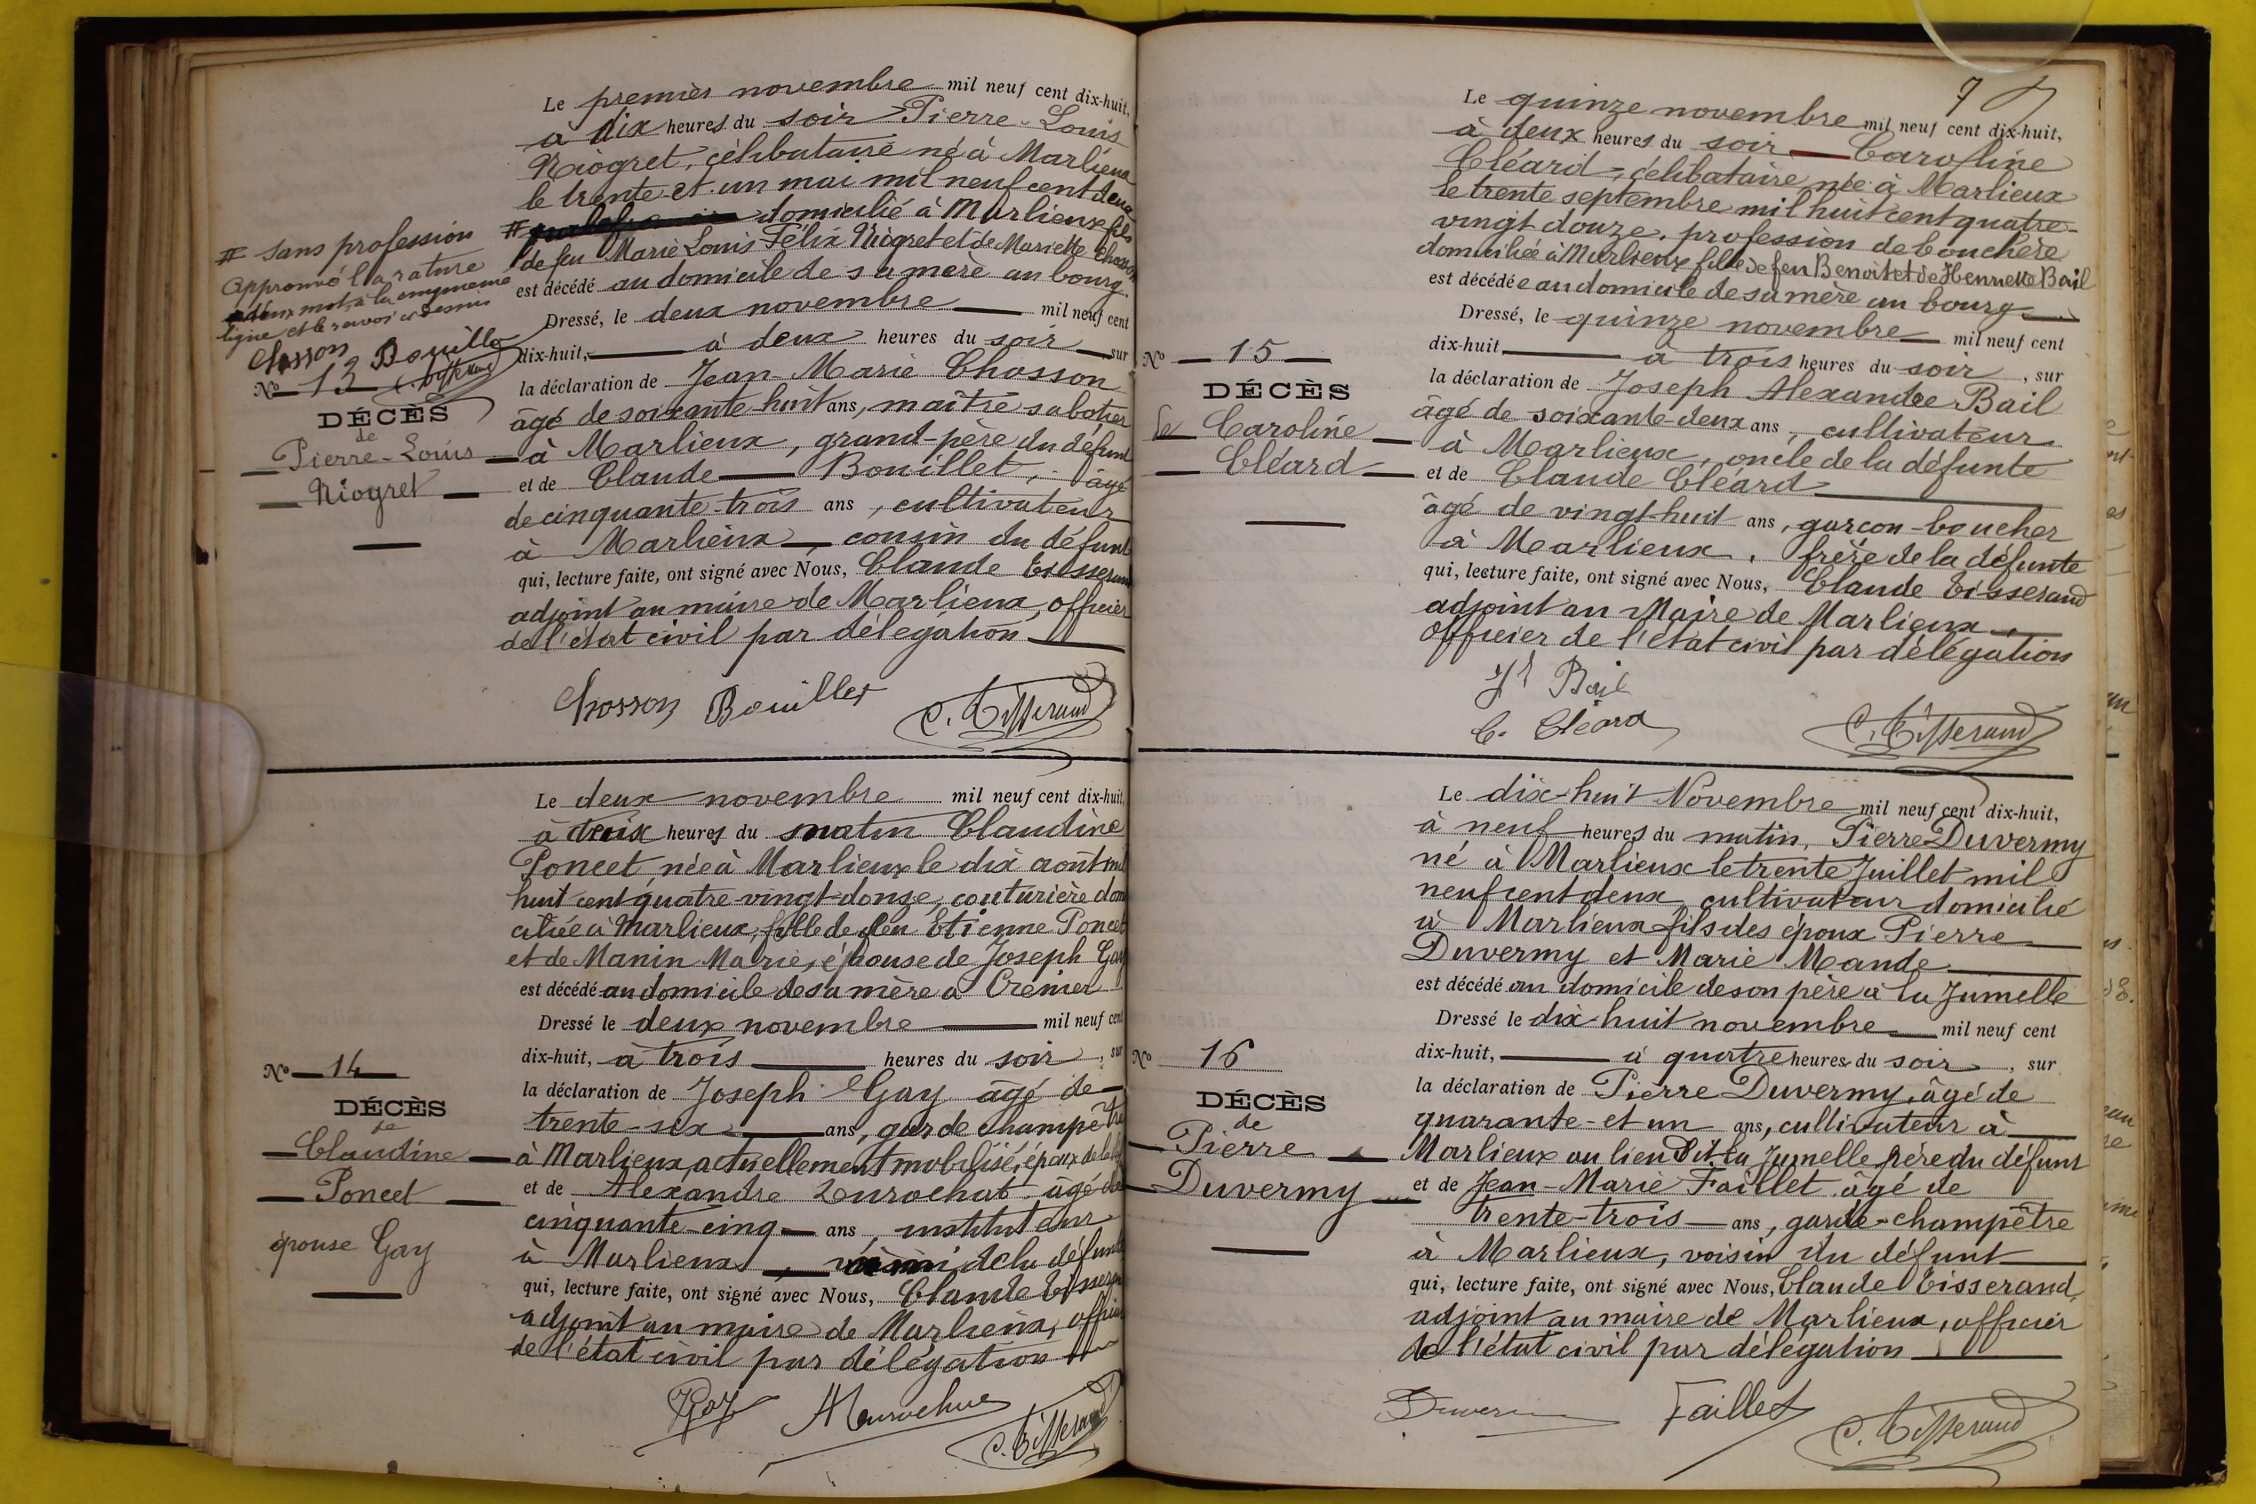 Le premier novembre mil neuf cent dix-huit,
à dix heures du soir Pierre-Louis
Niogret, célibataire né à Marlieux
le trente et un mai mil neuf cent deux
# domicilié à Marlieux fils
de feu Marie Louis Félix Niogret et de Mariette Chosson
est décédé au domicile de sa mère au bourg.
Dressé, le deux novembre mil neuf cent
dix-huit, à deux heures du soir, sur
la déclaration de Jean-Marie Chosson
âgé de soixante-huit ans, maître sabotier
à Marlieux, grand-père du défunt
et de Claude Bouillet, âgé
de cinquante-trois ans, cultivateur
à Marlieux, cousin du défunt
qui, lecture faite, ont signé avec Nous, Claude Tisserand
adjoint au maire de Marlieux, officier
de l'état civil par délégation
Chosson Bouillet C. Tisserand
# sans profession
Approuvé la rature
deux mots à la cinquième
ligne et le renvoi ci-dessus
Chosson Bouillet
C. Tisserand
No 13
DÉCÈS
de
Pierre-Louis
Niogret
Le deux novembre mil neuf cent dix-huit,
à heures du matin Claudine
Poncet, née à Marlieux le dix août mil
huit cent quatre-vingt-douze, couturière domi
ciliée à Marlieux, fille de feu Etienne Poncet
et de Manin Marie, épouse de Joseph Gay
est décédé au domicile de sa mère à Crénier
Dressé le deux novembre mil neuf cent
dix-huit, à trois heures du soir, sur
la déclaration de Joseph Gay âgé de
trente-six ans, garde champêtre
à Marlieux, actuellement mobilisé, époux de la
et de Alexandre Durochat âgé de
cinquante-cinq ans, instituteur
à Marlieux, de la défunte
qui, lecture faite, ont signé avec Nous, Claude Tisserand
adjoint au maire de Marlieux, officier
de l'état civil par délégation
Gay C. Tisserand
No 14
DÉCÈS
de
Claudine
Poncet
épouse Gay
7
Le quinze novembre mil neuf cent dix-huit,
à deux heures du soir Caroline
Cléard, célibataire née à Marlieux
le trente septembre mil huit cent quatre-
vingt douze, profession de bouchère
domiciliée à Marlieux fille de feu Benoît et de Henriette Bail
est décédée au domicile de sa mère au bourg
Dressé, le quinze novembre mil neuf cent
dix-huit à trois heures du soir, sur
la déclaration de Joseph Alexandre Bail
âgé de soixante-deux ans, cultivateur
à Marlieux, oncle de la défunte
et de Claude Cléard
âgé de vingt-huit ans, garçon-boucher
à Marlieux, frère de la défunte
qui, lecture faite, ont signé avec Nous, Claude Tisserand
adjoint au Maire de Marlieux,
officier de l'état civil par délégation
Jh Bail
C. Cléard C. Tisserand
No 15
DÉCÈS
de Caroline
Cléard
Le dix-huit Novembre mil neuf cent dix-huit,
à neuf heures du matin, Pierre Duvermy
né à Marlieux le trente Juillet mil
neuf cent deux, cultivateur domicilié
à Marlieux fils des époux Pierre
Duvermy et Marie Mande
est décédé au domicile de son père à la Jumelle
Dressé le dix-huit novembre mil neuf cent
dix-huit, à quatre heures du soir, sur
la déclaration de Pierre Duvermy, âgé de
quarante-et un ans, cultivateur à
Marlieux au lieu dit la Jumelle père du défunt
et de Jean-Marie Faillet âgé de
trente-trois ans, garde-champêtre
à Marlieux, voisin du défunt
qui, lecture faite, ont signé avec Nous, Claude Tisserand,
adjoint au maire de Marlieux, officier
de l'état civil par délégation
Faillet C. Tisserand
No 16
DÉCÈS
de
Pierre
Duvermy